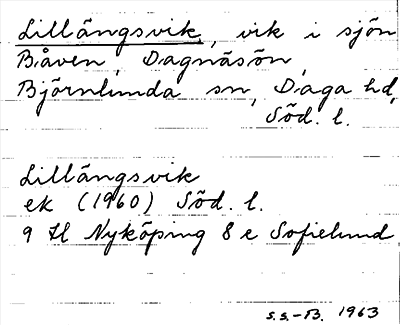 Lillängsvik, vik i sjön
Båven, Dagnäsön,
Björnlunda sn, Daga hd,
Söd. l.
Lillängsvik
ek (1960) Söd. l.
9 H Nyköping 8 e Sofielund
S.S.-B. 1963